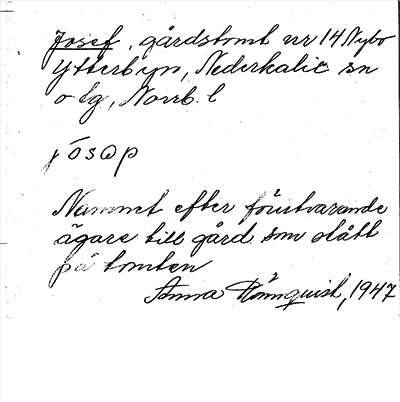 Josef, gårdstomt nr 14 Nybo
Ytterbyn, Nederkalix sn
o tg, Norrb. l
Namnet efter förutvarande
ägare till gård som stått
på tomten
Anna Rönnquist, 1947